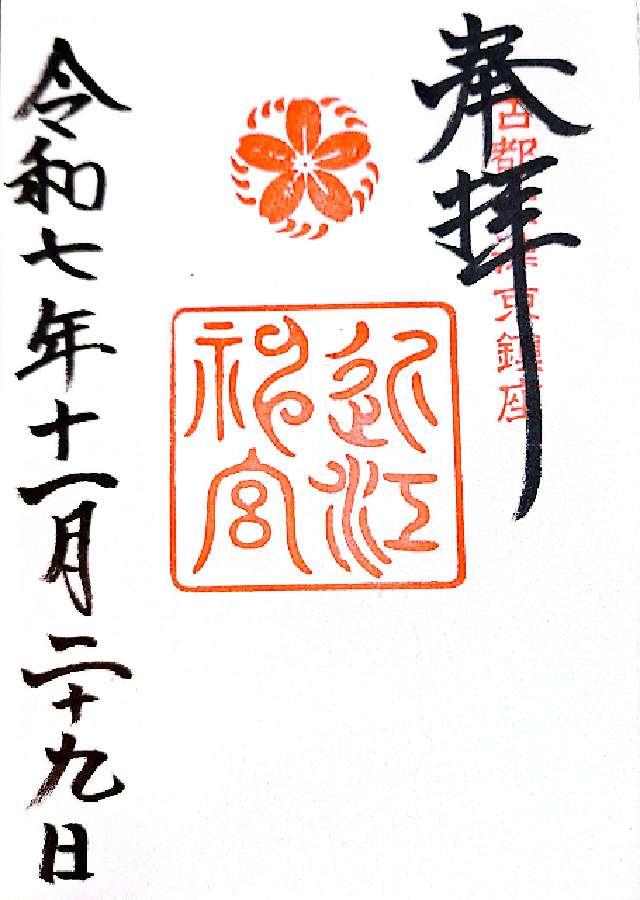 奉拝
古都 津亰鎮座
近江
神宮
令和七年十一月二十九日